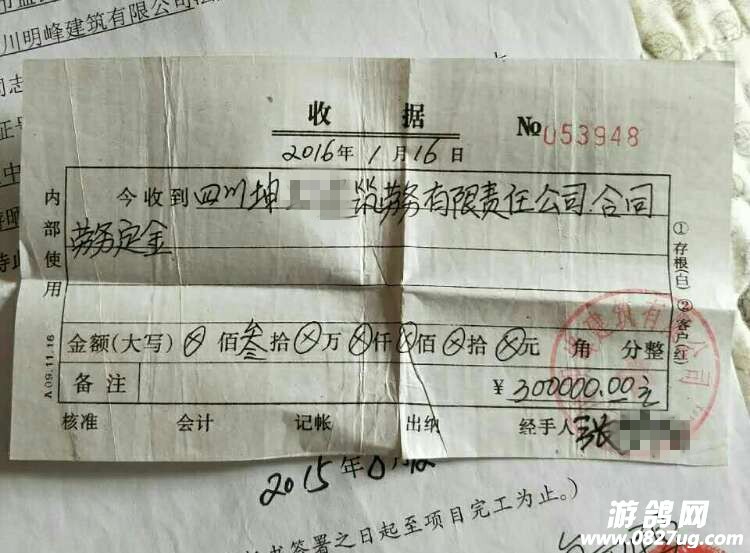 川明峰建筑有限公司
收 据
№ 053948
2016年1月16日
内部使用
今收到四川坤 筑劳务有限责任公司.合同
劳务定金
①存根(白) ②客户(红)
金额(大写)⊗佰叁拾⊗万⊗仟⊗佰⊗拾⊗元 角 分整
备注 ¥300000.00元
A 09.11.16
核准 会计 记帐 出纳 经手人 张
建筑有限公司
2015年
签署之日起至项目完工为止。)
游鸽网
www.0827ug.com